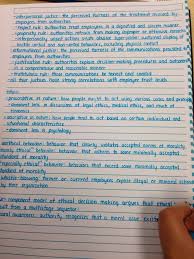 • interpersonal justice: the perceived fairness of the treatment received by employees from authorities
• respect rule: authorities treat employees in a dignified and sincere manner
• propriety rule: authorities refrain from making improper or offensive remarks
• interpersonally unjust actions create abusive supervision: sustained display of hostile verbal and non-verbal behaviors, excluding physical contact
• informational justice: the perceived fairness of the communications provided to employees from authorities
• justification rule: authorities explain decision-making procedures and outcomes in a comprehensive and reasonable manner
• truthfulness rule: those communications be honest and candid
• all four justice have strong correlations with employee trust levels
ethics:
• prescriptive in nature: how people ought to act using various codes and principles
• dominant lens in discussions of legal ethics, medical ethics, and much of economics
• descriptive in nature: how people tend to act based on certain individual and situational characteristics
• dominant lens in psychology
unethical behavior: behavior that clearly violates accepted norms of morality
"merely ethical" behavior: behavior that adheres to some minimally accepted standard of morality
"especially ethical" behavior: behaviors that exceed some minimally accepted standard of morality
whistle-blowing: former or current employees expose illegal or immoral actions by their organization
component model of ethical decision making argues that ethical
from a multistage sequence:
moral awareness: authority recognizes that a moral issue exists